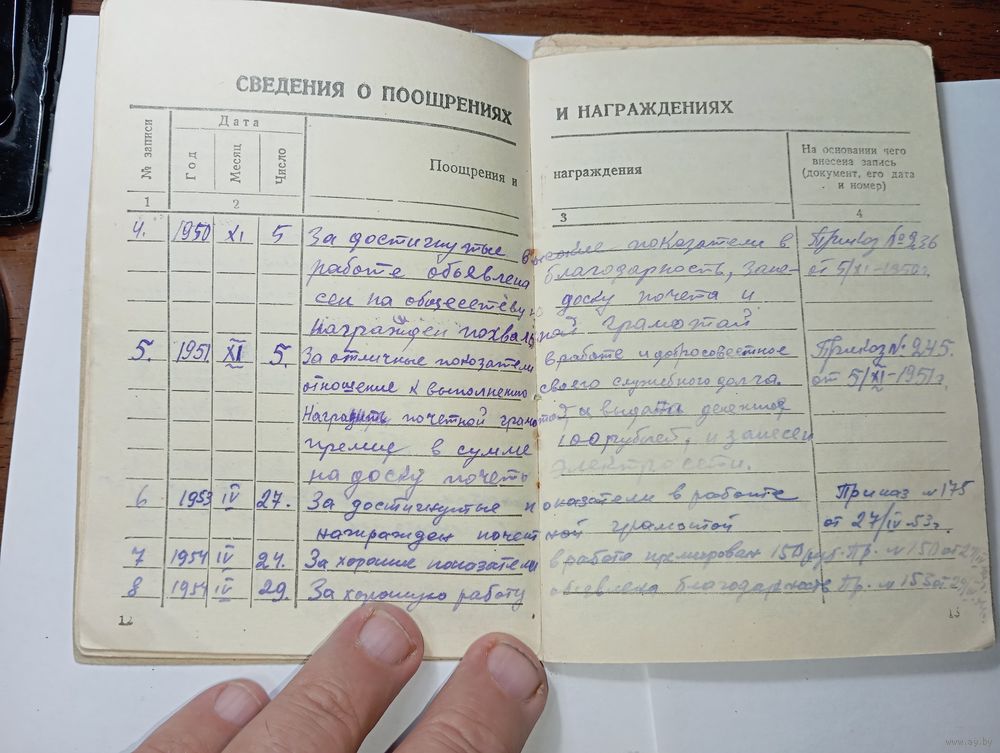 СВЕДЕНИЯ О ПООЩРЕНИЯХ И НАГРАЖДЕНИЯХ
№ записи
Дата
Год
Месяц
Число
Поощрения и награждения
На основании чего
внесена запись
(документ, его дата
и номер)
1 2 3 4
4. 1950 XI 5 За достигнутые высокие показатели в Приказ № 236
работе объявлена благодарность, зане- от 5/XI-1950г.
сен на общесетевую доску почета и
награжден похвальной грамотой
5. 1951 XI 5. За отличные показатели в работе и добросовестное Приказ № 245.
отношение к выполнению своего служебного долга. от 5/XI-1951г.
Наградить почетной грамотой и выдать денежную
премию в сумме 100 рублей, и занесен
на доску почета электросети.
6 1953 IV 27. За достигнутые показатели в работе Приказ № 175
награжден почетной грамотой от 27/IV 53г.
7 1954 IV 24. За хорошие показатели в работе премирован 150 руб. Пр. № 150 от
8 1954 IV 29. За хорошую работу объявлена благодарность Пр. № 153 от
12
13
www.ay.by